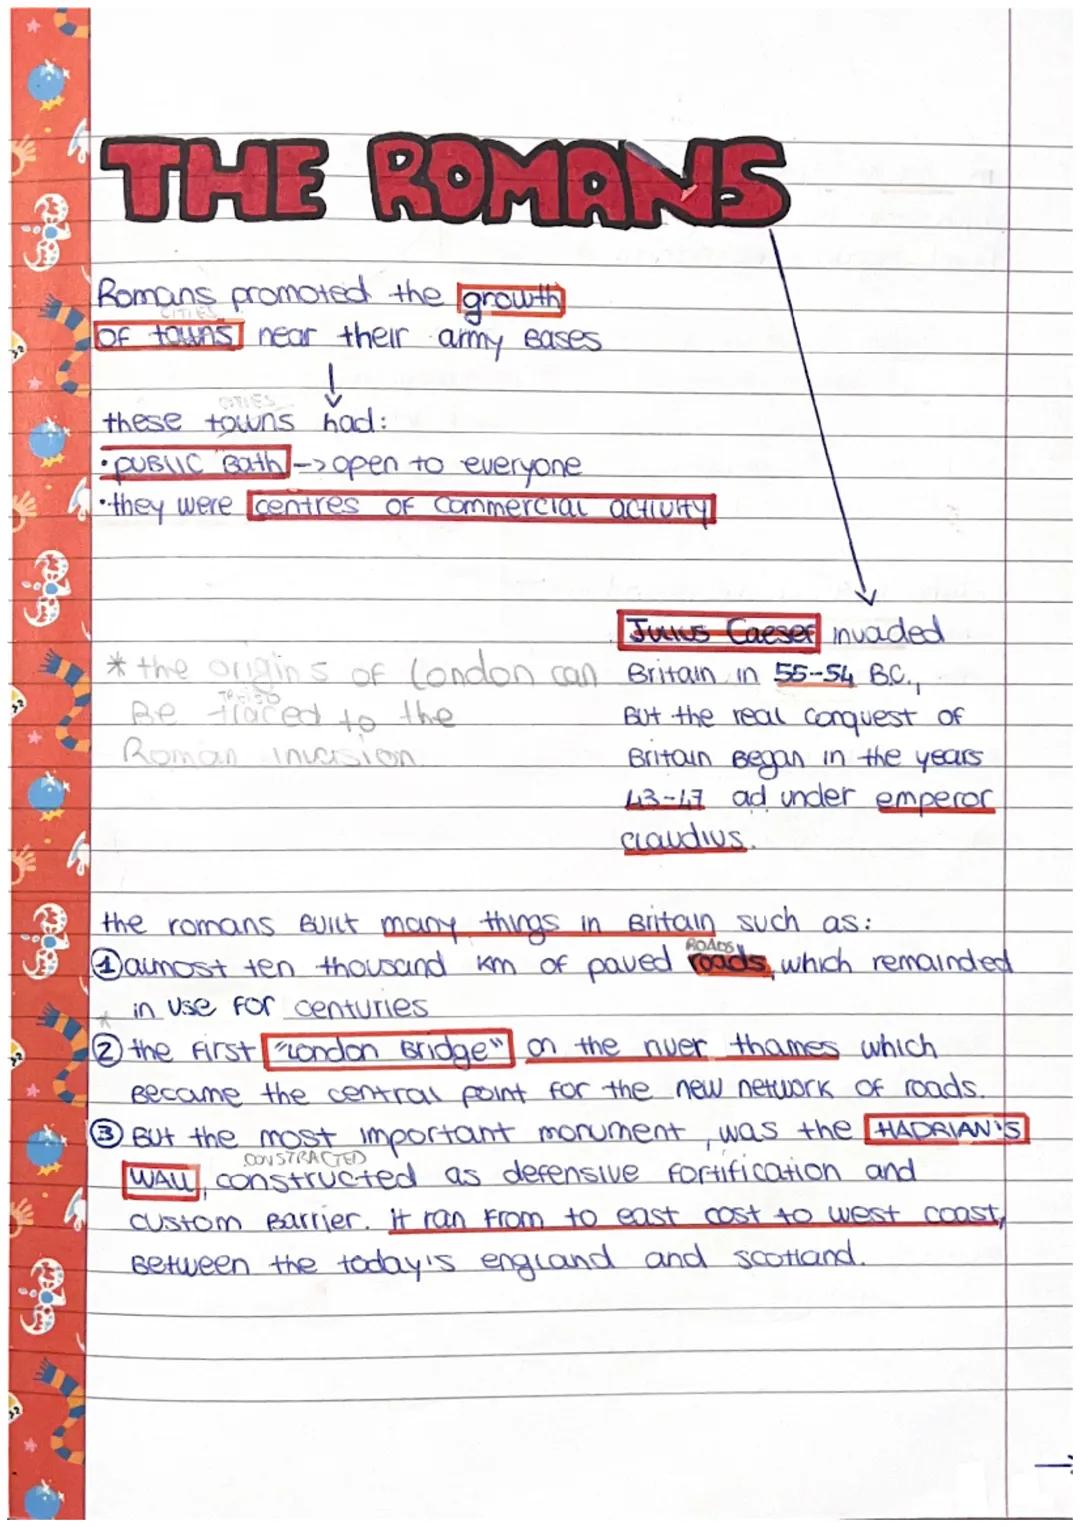 THE ROMANS
Romans promoted the growth
CITIES
OF towns near their army Bases
CITIES
these towns had:
• PUBLIC Bath -> open to everyone
• they were centres OF commercial activity
Julius Caeser invaded
Britain in 55-54 B.C.,
But the real conquest of
Britain Began in the years
43-47 ad under emperor
claudius.
* the origins of London can
TREISD
Be traced to the
Roman invasion
the romans Built many things in Britain such as:
ROADS
① almost ten thousand km of paved roads, which remainded
* in use for centuries
② the First "London Bridge" on the river thames which
Became the central point for the new network of roads.
③ But the most important monument, was the HADRIAN'S
CONSTRACTED
WALL, constructed as defensive fortification and
custom Barrier. it ran from to east cost to west coast,
Between the today's england and scotland.
→